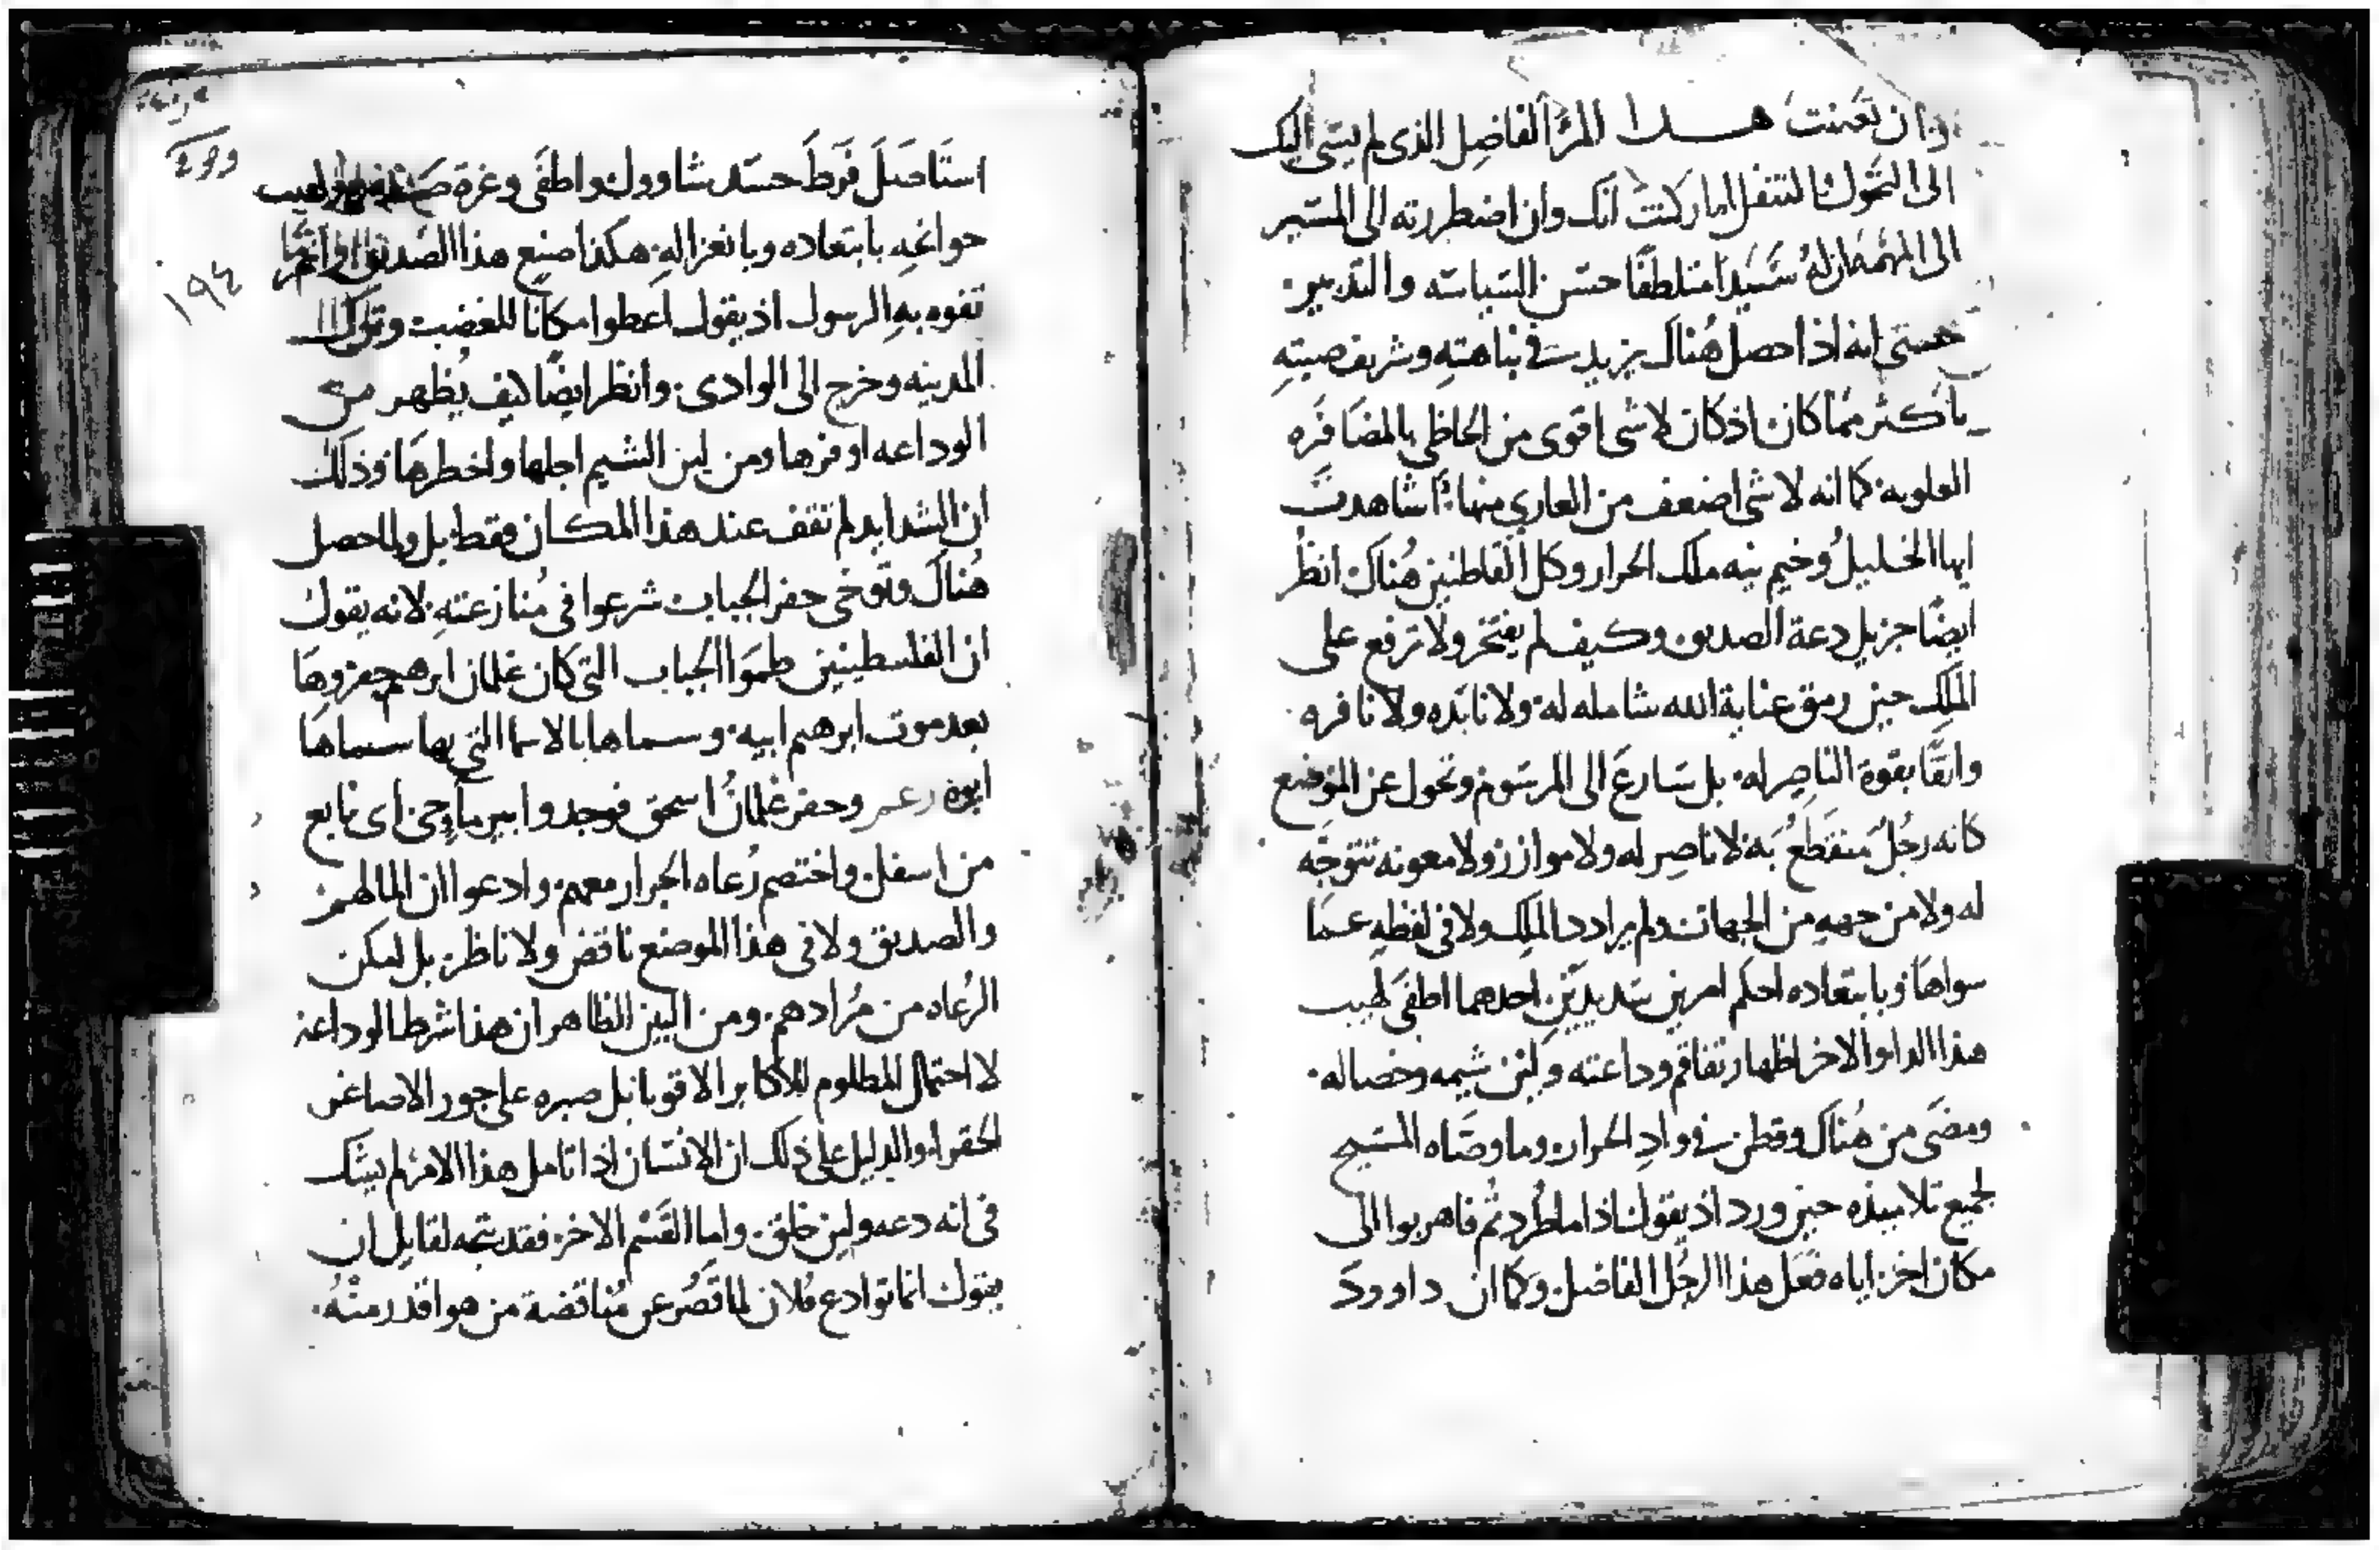 وان تعنت هذا المرء الفاضل الذى لم يسى اليك
الى التحول والتنقل اما ركنت انك وان اضطررته الى المسير
الى المهمه ان له سَيدا متلطفًا حسن السياسه والتدبير.
حتى انه اذا حصل هُناك يزيد في نباهتهِ وشريف صيتهِ
باكثر مما كان اذ كان لا شى اقوى من الحاظى بالمضافره
العلويه. كما انه لا شى اضعف من العاري منها. اشاهدت
ايها الخليل وخيم نيه ملك الجرار وكل القاطنين هُناك. انظر
ايضًا جزيل دعة الصديق وكيف لم يفتخر ولا ترفع على
الملك حين رمق عناية الله شامله له. ولا نابَذه ولا نافره.
واثقًا بقوة الناصِر له. بل سَارعَ الى المرسَوم وتحول عن الموضع
كانه رجُل منقطعُ به. لا ناصِر له ولا موازر ولا معونه تتوجَه
له ولا من جههِ من الجهات ولم يرادد الملك ولا فى لفظهِ عما
سواها وبابتعاده احكم امرين سَديدَين. احدهما اطفَى لهيب
هذا الداء والاخر اظهار تفاقم وداعته ولين شيمه وخصاله.
ومضَى من هُناك وقطن في وادِ الجرار. وما وصَاه المسَيح
لجميع تلاميذه حين ورد اذ يقول. اذا ما طُردتُم فاهربوا الى
مكان اخر. اياه فعَل هذا الرجُل الفاضل. وكما ان داوودَ
استَاصَلَ فَرطَ حسَد شاوول واطفَى وغرة
حواغِه بابتعاده وبانعزالهِ. هكذا صنع هذا الصديق
تفوه بهِ الرسول اذ يقول اعطوا مكانًا للغضب وترك
المدينه وخرج الى الوادى. وانظر ايضًا كيف يُظهر من
الوداعه اوفرها ومن لين الشيم اجلها واخطرها وذلك
ان الشدايد لم تقف عند هذا المكان فقط. بل ولما حصل
هُناك وتوخى حفر الجباب شرعوا فى مُنازعتهِ. لانه يقول
ان الفلسطينيين طموَا الجباب التى كان غلمان ابرهيم حفروها
بعد موت ابرهيم ابيه. وسماها بالاسما التى بها سماها
ابوه وحفر غلمانُ اسحق فوجدوا بير ماءٍ حى اى نابع
من اسفل. واختصم رُعاه الجرار معهم. وادعوا ان الما لهم
والصديق ولا فى هذا الموضع ناقض ولا ناظر. بل امكن
الرُعاه من مُرادهم. ومن البين الظاهر ان هذا شرط الوداعة
لا احتمال المظلوم للاكابر الاقويا. بل صبره على جور الاصاغر
الحقراء. والدليل على ذلك ان الانسَان اذا تامل هذا الامر لم يشك
فى انه دعه ولين خلق. واما القَسْم الاخر. فقد يتجه لقايل ان
يقول انما توادع فلان لما قَصُر عن مُناقضة من هو اقدر منهُ.
١٩٤